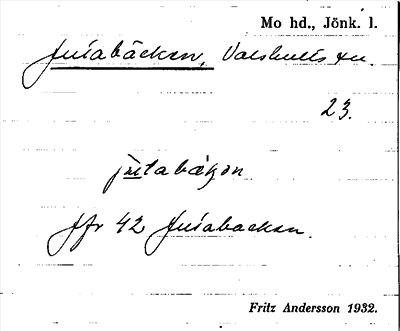 Mo hd., Jönk. l.
Jutabäcken, Valshults xu.
23.
jutabäkọn
Jfr 42 Jutabacken.
Fritz Andersson 1932.